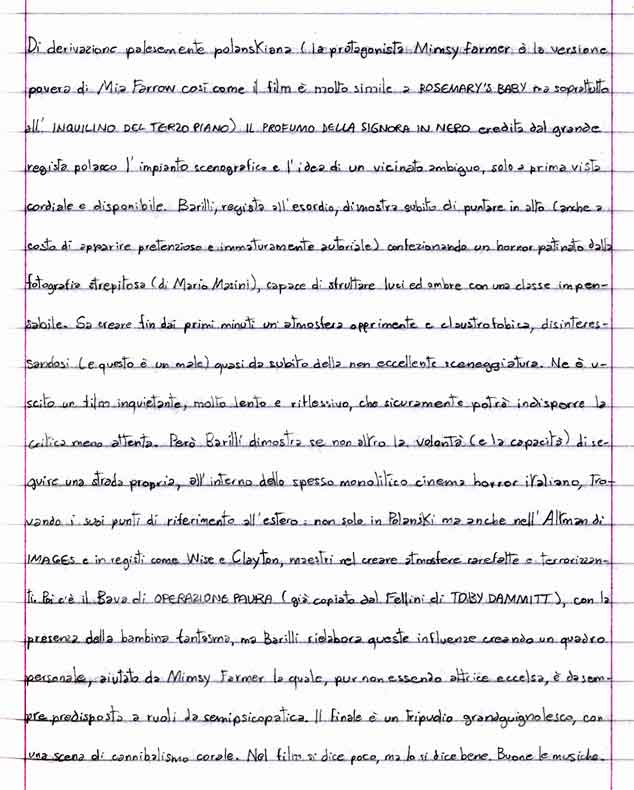 Di derivazione palesemente polanskiana (la protagonista Mimsy Farmer è la versione
povera di Mia Farrow così come il film è molto simile a ROSEMARY'S BABY ma soprattutto
all' INQUILINO DEL TERZO PIANO) IL PROFUMO DELLA SIGNORA IN NERO eredita dal grande
regista polacco l'impianto scenografico e l'idea di un vicinato ambiguo, solo a prima vista
cordiale e disponibile. Barilli, regista all'esordio, dimostra subito di puntare in alto (anche a
costo di apparire pretenzioso e immaturamente autoriale) confezionando un horror patinato dalla
fotografia strepitosa (di Mario Masini), capace di sfruttare luci ed ombre con una classe impen-
sabile. Sa creare fin dai primi minuti un'atmosfera opprimente e claustrofobica, disinteres-
sandosi (e questo è un male) quasi da subito della non eccellente sceneggiatura. Ne è u-
scito un film inquietante, molto lento e riflessivo, che sicuramente potrà indisporre la
critica meno attenta. Però Barilli dimostra se non altro la volontà (e la capacità) di se-
guire una strada propria, all'interno dello spesso monolitico cinema horror italiano, tro-
vando i suoi punti di riferimento all'estero: non solo in Polanski ma anche nell'Altman di
IMAGES e in registi come Wise e Clayton, maestri nel creare atmosfere rarefatte e terrorizzan-
ti. Poi c'è il Bava di OPERAZIONE PAURA (già copiato dal Fellini di TOBY DAMMITT), con la
presenza della bambina fantasma, ma Barilli rielabora queste influenze creando un quadro
personale, aiutato da Mimsy Farmer la quale, pur non essendo attrice eccelsa, è da sem-
pre predisposta a ruoli da semipsicopatica. Il finale è un tripudio grandguignolesco, con
una scena di cannibalismo corale. Nel film si dice poco, ma lo si dice bene. Buone le musiche.